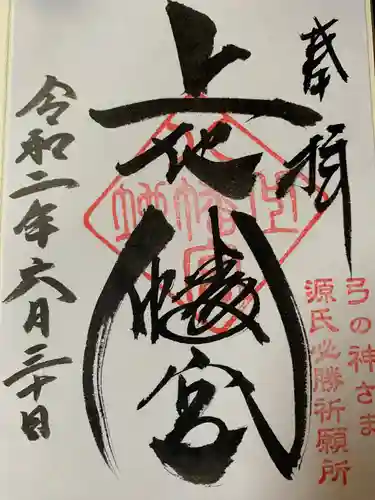 奉拝
弓の神さま
源氏必勝祈願所
上地八幡宮
令和二年六月三十日